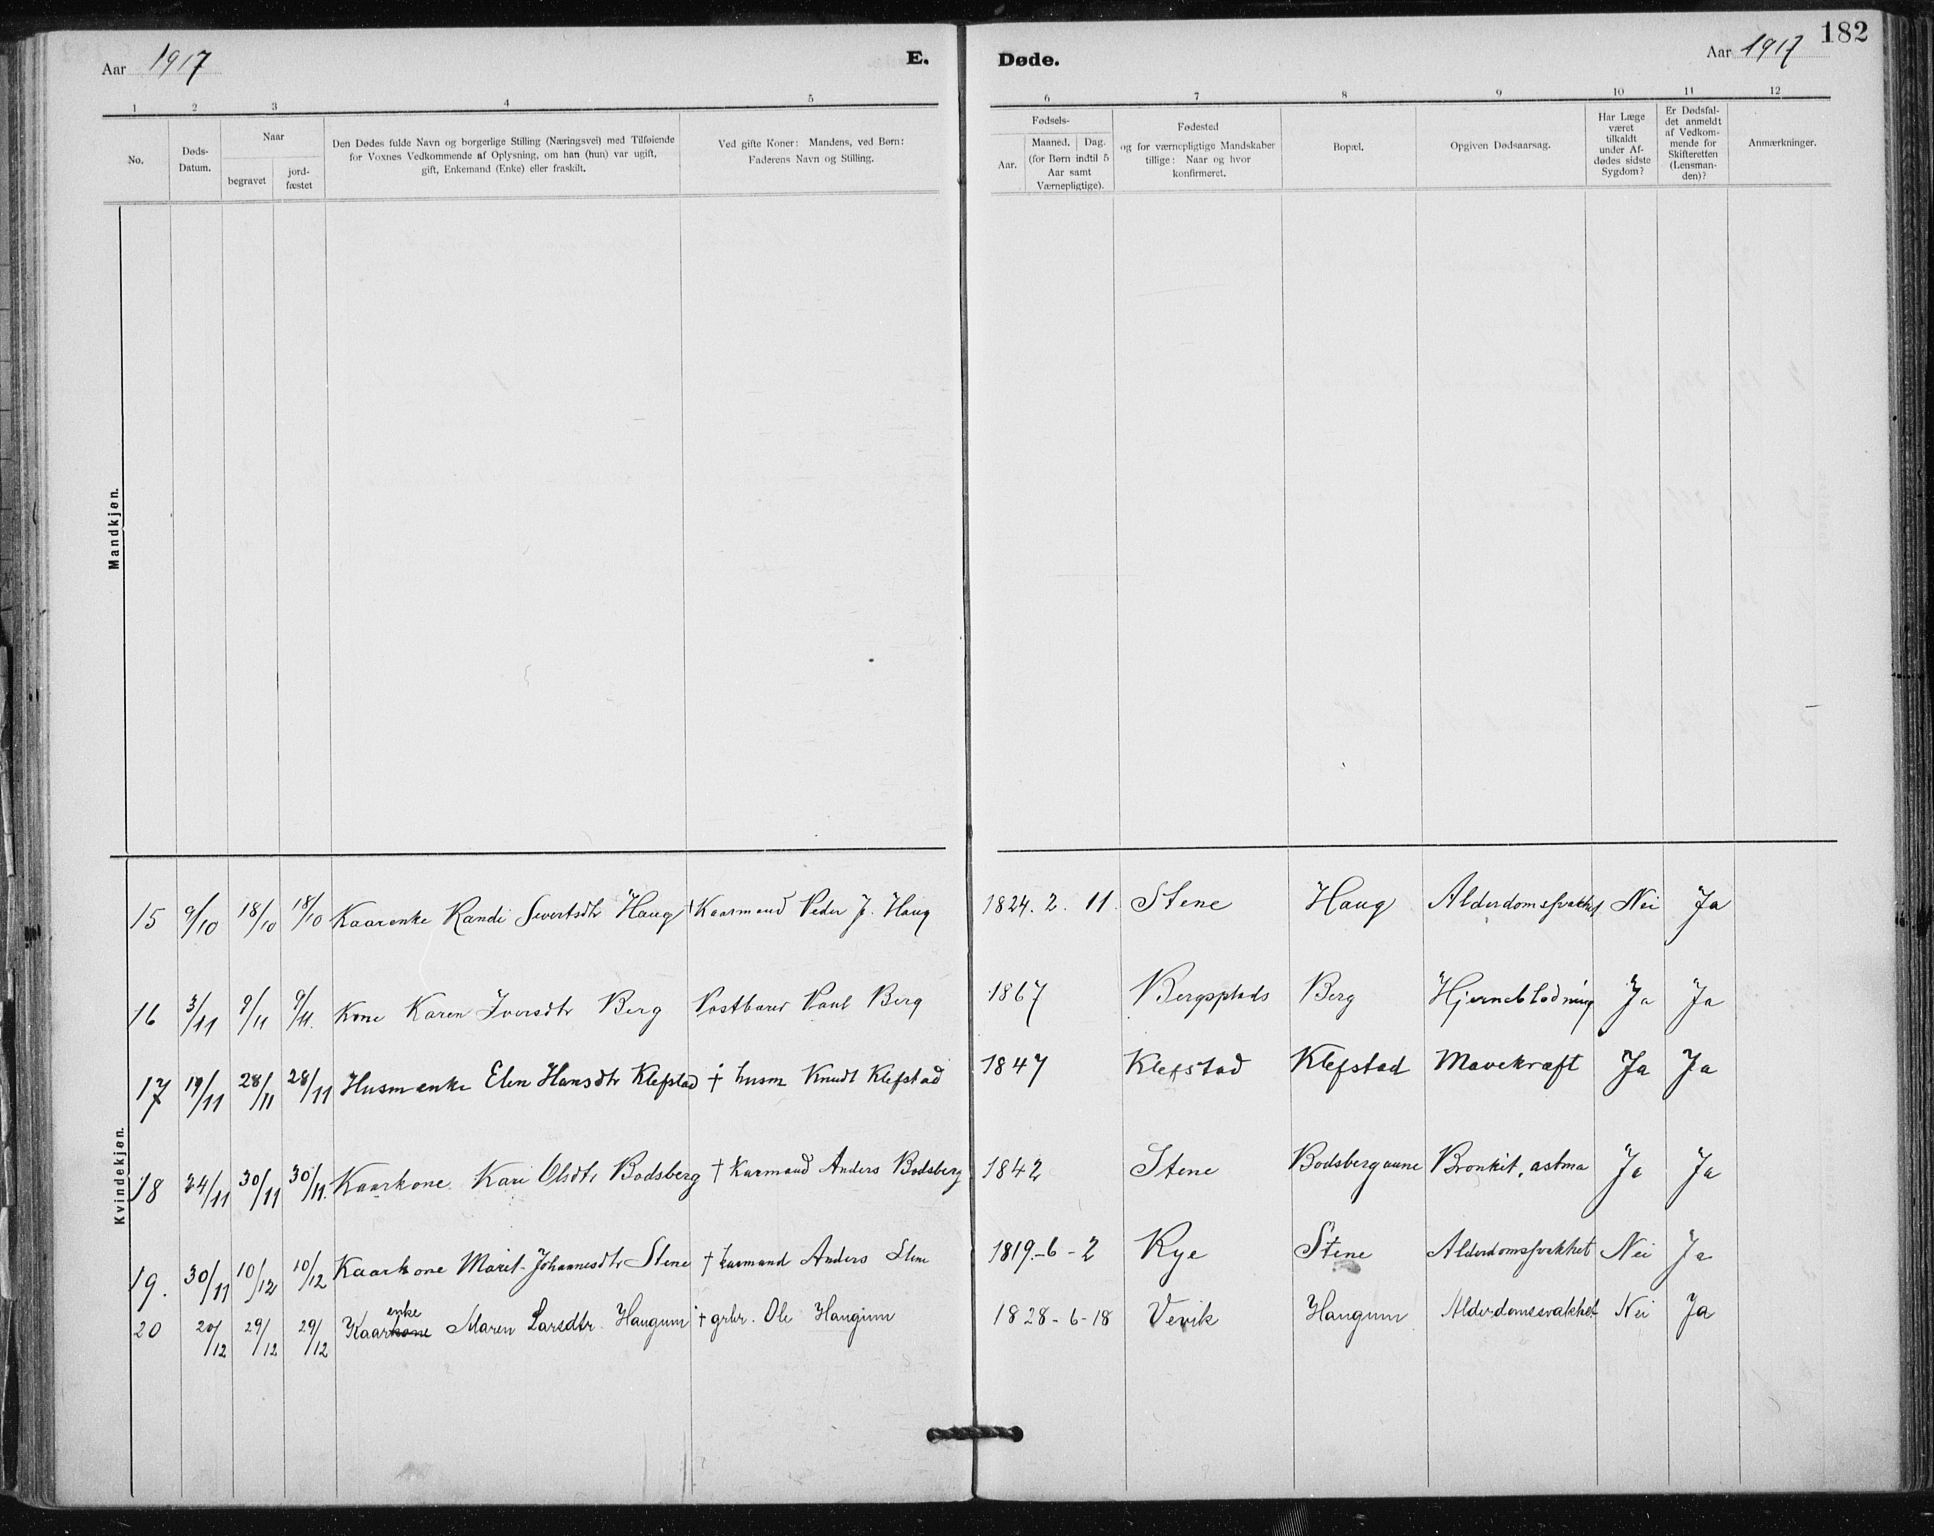 182
Aar 1917 E. Døde. Aar 1917
1 2 3 4 5 6 7 8 9 10 11 12
No.
Døds-
Datum.
Naar
begravet
jord-
fæstet
Den Dødes fulde Navn og borgerlige Stilling (Næringsvei) med Tilføiende
for Voxnes Vedkommende af Oplysning, om han (hun) var ugift,
gift, Enkemand (Enke) eller fraskilt.
Ved gifte Koner: Mandens, ved Børn:
Faderens Navn og Stilling.
Fødsels-
Aar.
Maaned. Dag.
(for Børn indtil 5
Aar samt
Værnepligtige).
Fødested
og for værnepligtige Mandskaber
tillige: Naar og hvor
konfirmeret.
Bopæl.
Opgiven Dødsaarsag.
Har Læge
været
tilkaldt
under Af-
dødes sidste
Sygdom?
Er Dødsfal-
det anmeldt
af Vedkom-
mende for
Skifteretten
(Lensman-
den)?
Anmærkninger.
Mandkjøn.
Kvindekjøn.
15 9/10 18/10 18/10 Kaarenke Randi Sivertsdtr Haug Kaarmand Peder J. Haug 1824. 2. 11. Stene Haug Alderdomssvakhet Nei Ja
16 3/11 9/11 9/11. Kone Karen Iversdtr Berg Postbarer Paul Berg 1867 Bergsplads Berg Hjerneblødning Ja Ja
17 19/11 28/11 28/11 Husmenke Elen Hansdtr Klefstad † husm Knudt Klefstad 1847 Klefstad Klefstad Mavekræft Ja Ja
18 24/11 30/11 30/11. Kaarkone Kari Olsdtr Bodsberg † Karmand Anders Bodsberg 1842 Stene Bodsbergaune Bronkit, astma Ja Ja
19. 30/11 10/12 10/12 Kaarkone Marit Johannesdtr Stene † karmand Anders Stene 1819.-6-2 Kye Stene Alderdomssvakhet Nei Ja
enke
20 20/12 29/12 29/12 Kaarkone Maren Larsdtr. Haugum † grbr. Ole Haugum 1828-6-18 Vevik Haugum Alderdomssvakhet Nei Ja